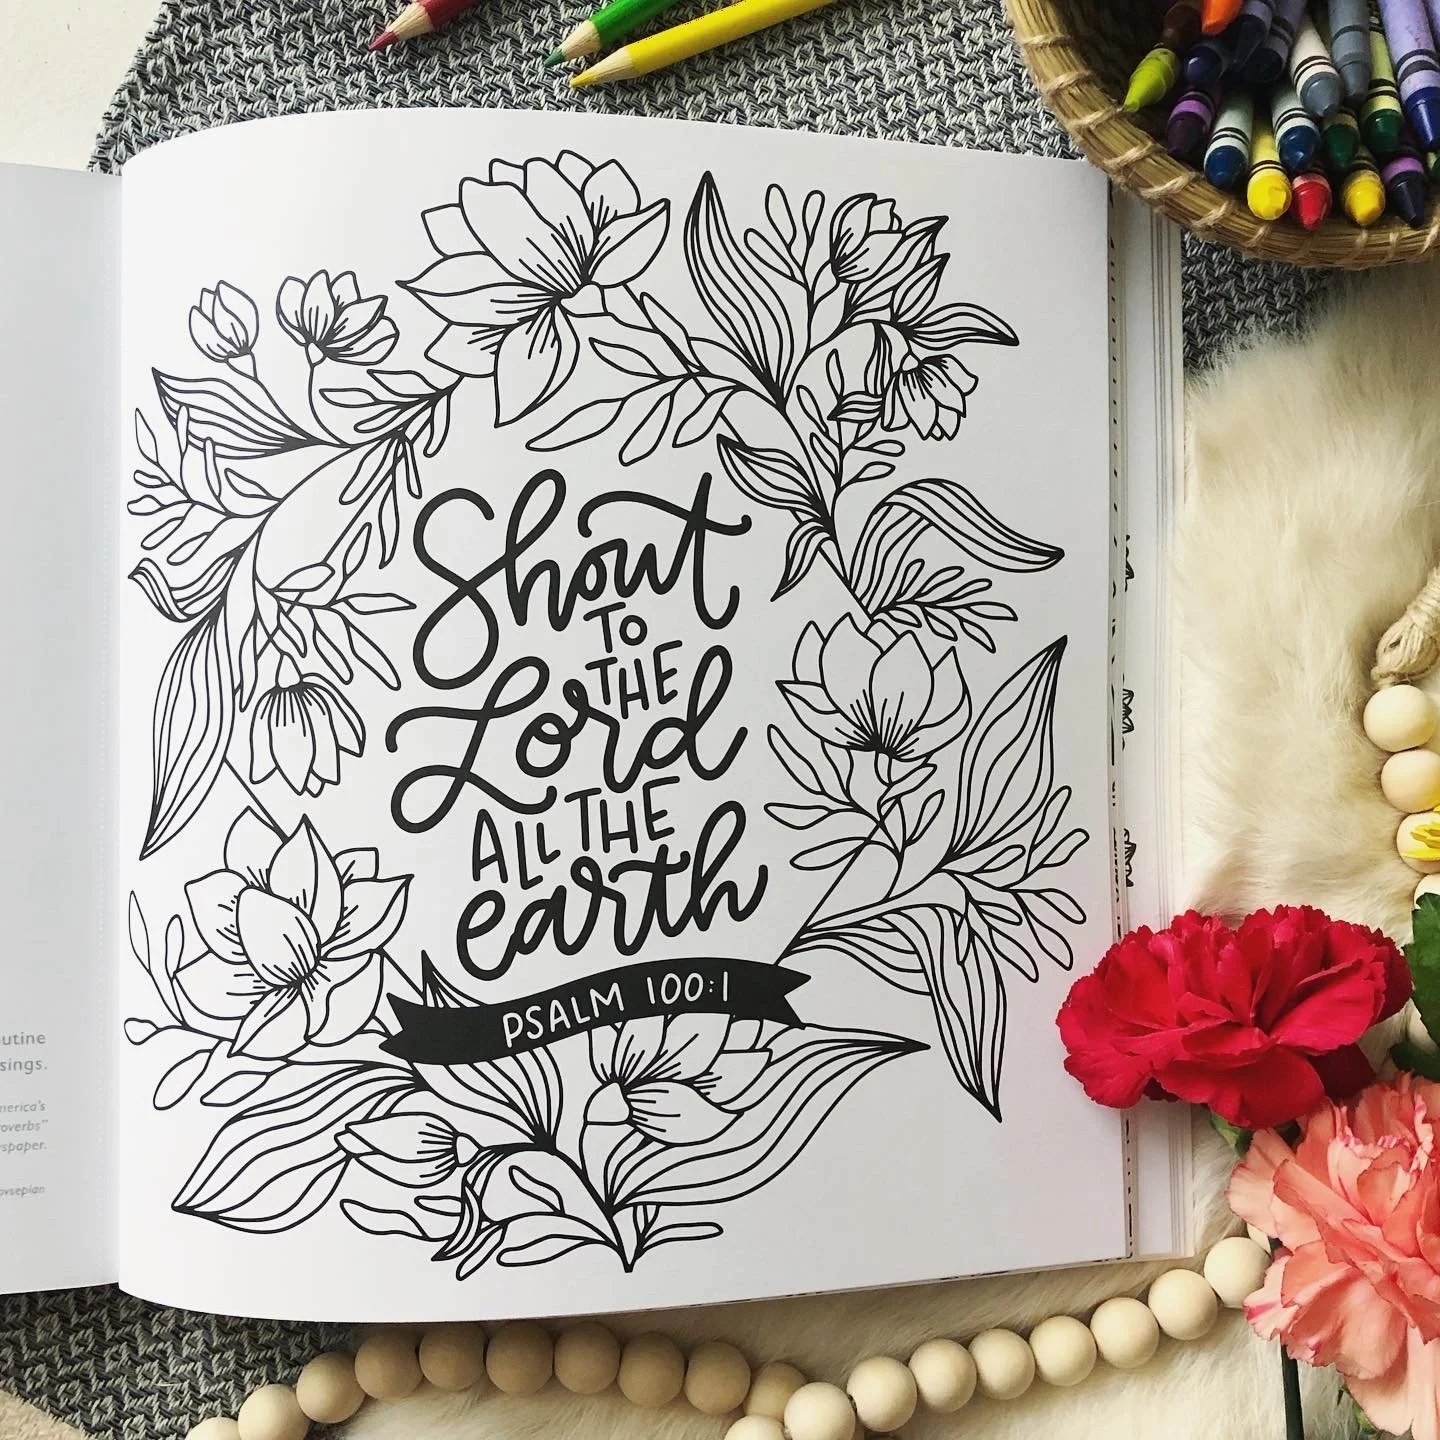 Shout
TO
THE
Lord
ALL THE
earth
PSALM 100:1
utine
sings.
nerica's
overbs"
spaper.
ovsepian